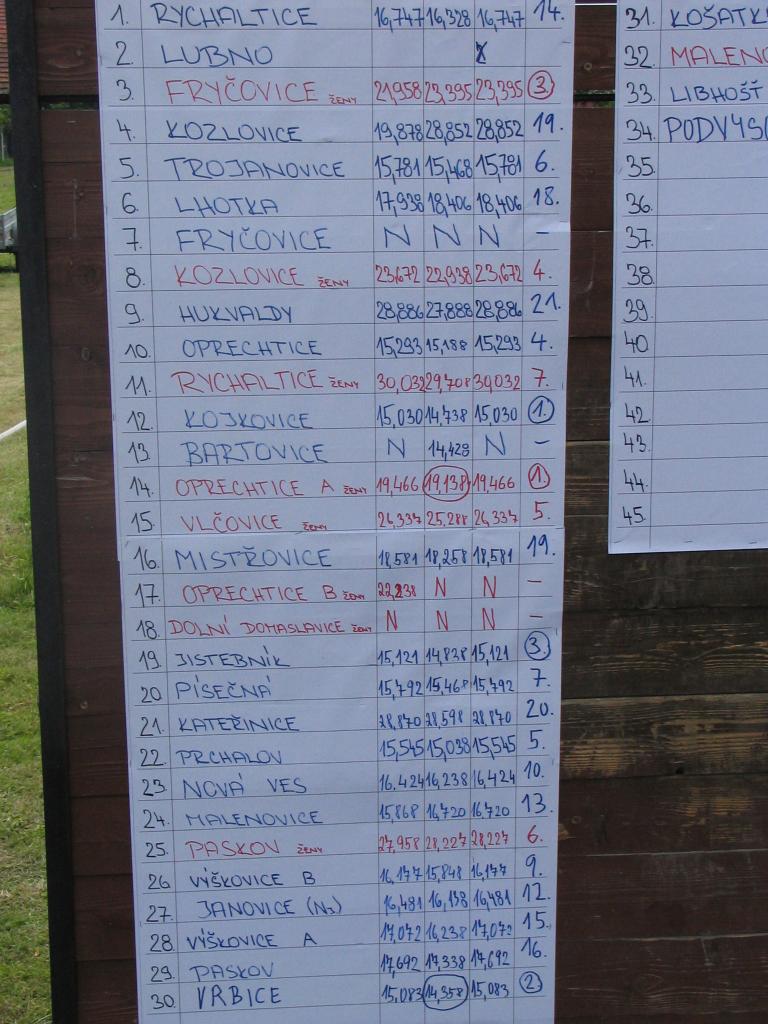 1. RYCHALTICE 16,747 16,328 16,747 14.
2. LUBNO X
3. FRYČOVICE ŽENY 21,958 23,395 23,395 3.
4. KOZLOVICE 19,878 28,852 28,852 19.
5. TROJANOVICE 15,781 15,468 15,781 6.
6. LHOTKA 17,938 18,406 18,406 18.
7. FRYČOVICE N N N –
8. KOZLOVICE ŽENY 23,672 22,938 23,672 4.
9. HUKVALDY 28,886 27,888 28,886 21.
10. OPRECHTICE 15,293 15,188 15,293 4.
11. RYCHALTICE ŽENY 30,032 29,708 30,032 7.
12. KOJKOVICE 15,030 14,738 15,030 1.
13. BARTOVICE N 14,428 N –
14. OPRECHTICE A ŽENY 19,466 19,138 19,466 1.
15. VLČOVICE ŽENY 26,337 25,288 26,337 5.
16. MISTŘOVICE 18,581 18,258 18,581 19.
17. OPRECHTICE B ŽENY 22,238 N N –
18. DOLNÍ DOMASLAVICE ŽENY N N N –
19. JISTEBNÍK 15,121 14,828 15,121 3.
20 PÍSEČNÁ 15,792 15,468 15,792 7.
21. KATEŘINICE 28,870 28,598 28,870 20.
22. PRCHALOV 15,545 15,038 15,545 5.
23. NOVÁ VES 16,424 16,238 16,424 10.
24. MALENOVICE 15,868 16,720 16,720 13.
25. PASKOV ŽENY 27,958 28,227 28,227 6.
26 VÝŠKOVICE B 16,177 15,848 16,177 9.
27. JANOVICE (N3) 16,481 16,138 16,481 12.
28 VÝŠKOVICE A 17,072 16,238 17,072 15.
29. PASKOV 17,692 17,338 17,692 16.
30. VRBICE 15,083 14,358 15,083 2
31. KOŠATK
32. MALENO
33. LIBHOŠŤ
34. PODVYSO
35.
36.
37.
38.
39.
40
41.
42.
43.
44.
45.